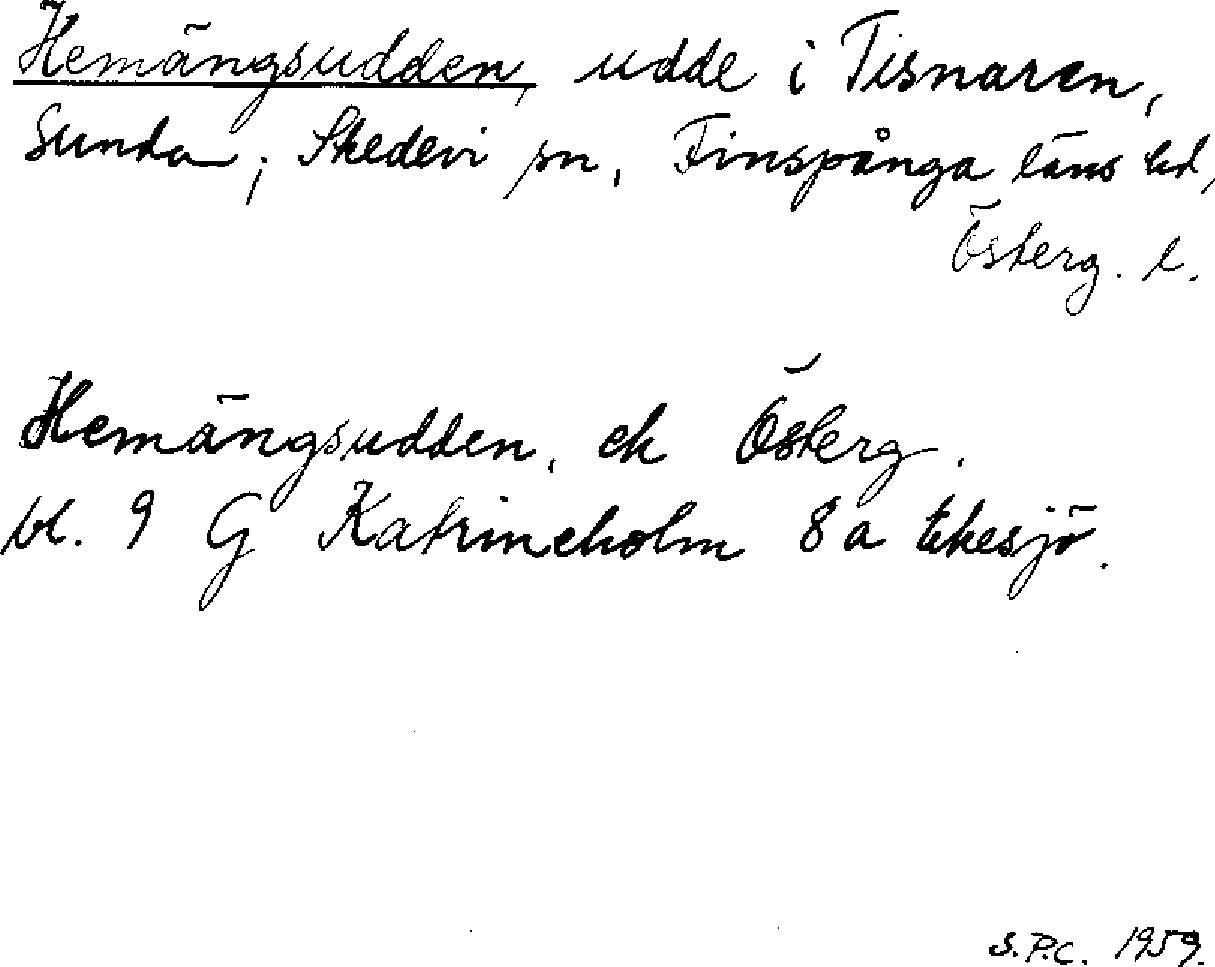 Hemängsudden, udde i Tisnaren,
Sunda; Skedevi sn, Finspånga läns hd,
Österg. l.
Hemängsudden, ek Österg.
bl. 9 G Katrineholm 8 a Ekesjö.
S.P.C. 1959.